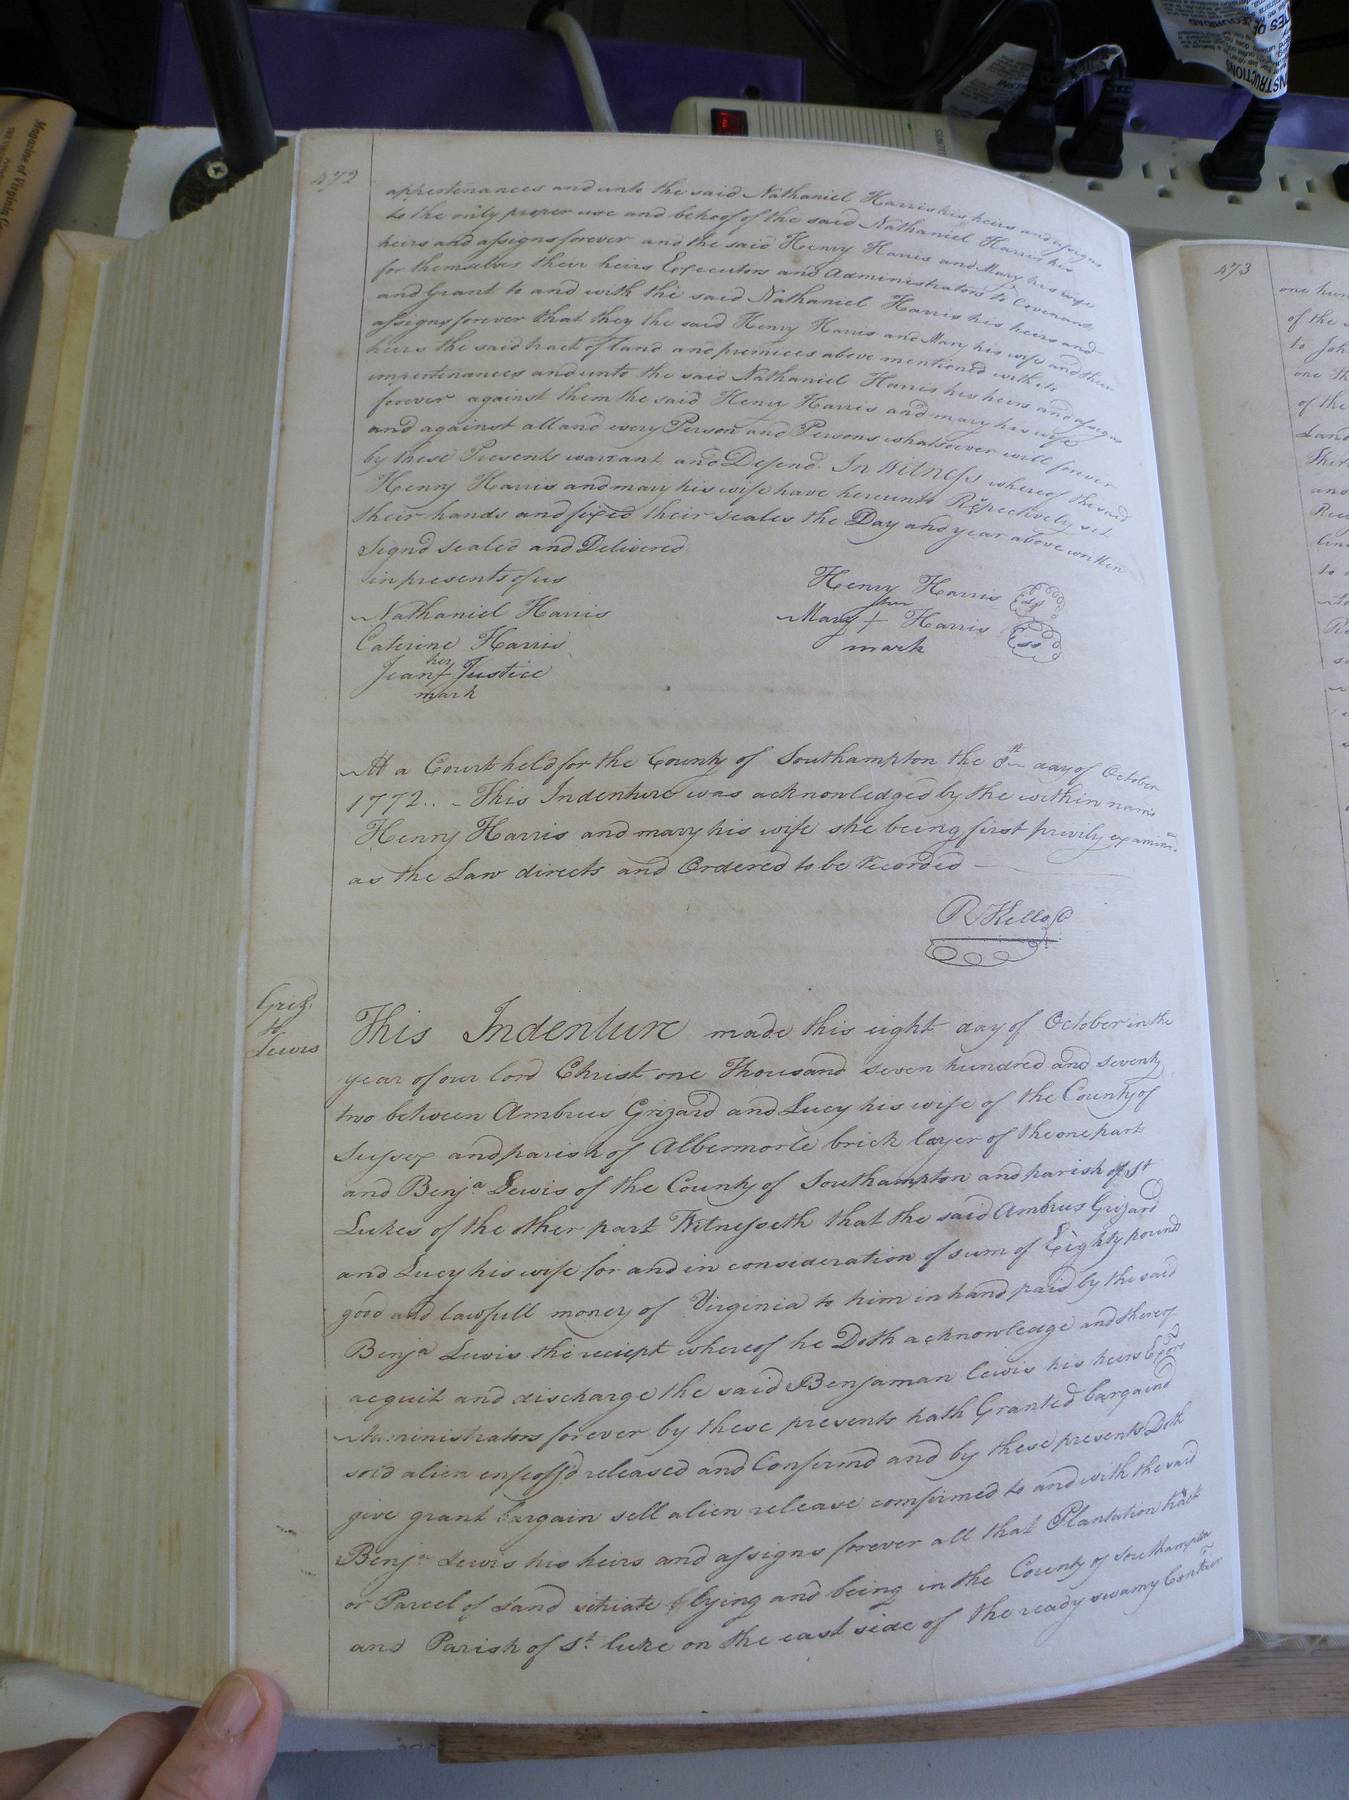 472
appertenances and unto the said Nathaniel Harris his heirs and assigns
to the only proper use and behoof of the said Nathaniel Harris his
heirs and assigns forever and the said Henry Harris and Mary his wife
for themselves their heirs Executors and Administrators to Covenant
and Grant to and with the said Nathaniel Harris his heirs and
assigns forever that they the said Henry Harris and Mary his wife and their
heirs the said tract of land and premices above mentioned with its
impertenances and unto the said Nathaniel Harris his heirs and assigns
forever against them the said Henry Harris and mary his wife
and against all and every Person and Persons whatsoever will forever
by these Presents warrant and Defend. In Witness whereof the said
Henry Harris and mary his wife have hereunto Respectively set
their hands and fixed their seales the Day and year above written
Signd sealed and Delivered
in presents of us
Nathaniel Harris
Caterine Harris
her
Jean + Justice
mark
Henry Harris
her
Mary + Harris
mark
At a Court held for the County of Southampton the 8th day of October
1772.. This Indenture was acknowledged by the within nam'd
Henry Harris and mary his wife she being first privily examined
as the Law directs and Ordered to be Recorded
R Kello C
Griz.
to
Lewis
This Indenture made this eight day of October in the
year of our lord Christ one Thousand seven hundred and seventy
two between Ambrus Grizard and Lucy his wife of the County of
Sussex and parish of Albermorle brick layer of the one part
and Benja Lewis of the County of Southampton and parish of St
Lukes of the other part Witnesseth that the said Ambrus Grizard
and Lucy his wife for and in consideration of sum of Eighty pound
good and lawfull money of Virginia to him in hand paid by the said
Benja Lewis the reciept whereof he Doth acknowledge and thereof
acquit and discharge the said Benjaman Lewis his heirs Exors
Administrators forever by these presents hath Granted bargaind
sold alien enfeoff'd released and Confirmd and by these presents Doth
give grant bargain sell alien release comfirmed to and with the said
Benja Lewis his heirs and assigns forever all that Plantation tract
or Parcel of Land sitiate lying and being in the County of Southampton
and Parish of St. luke on the east side of the ready swamy Contain
473
one hun
of the
to Joh
one Th
of the
Land
Thir
and